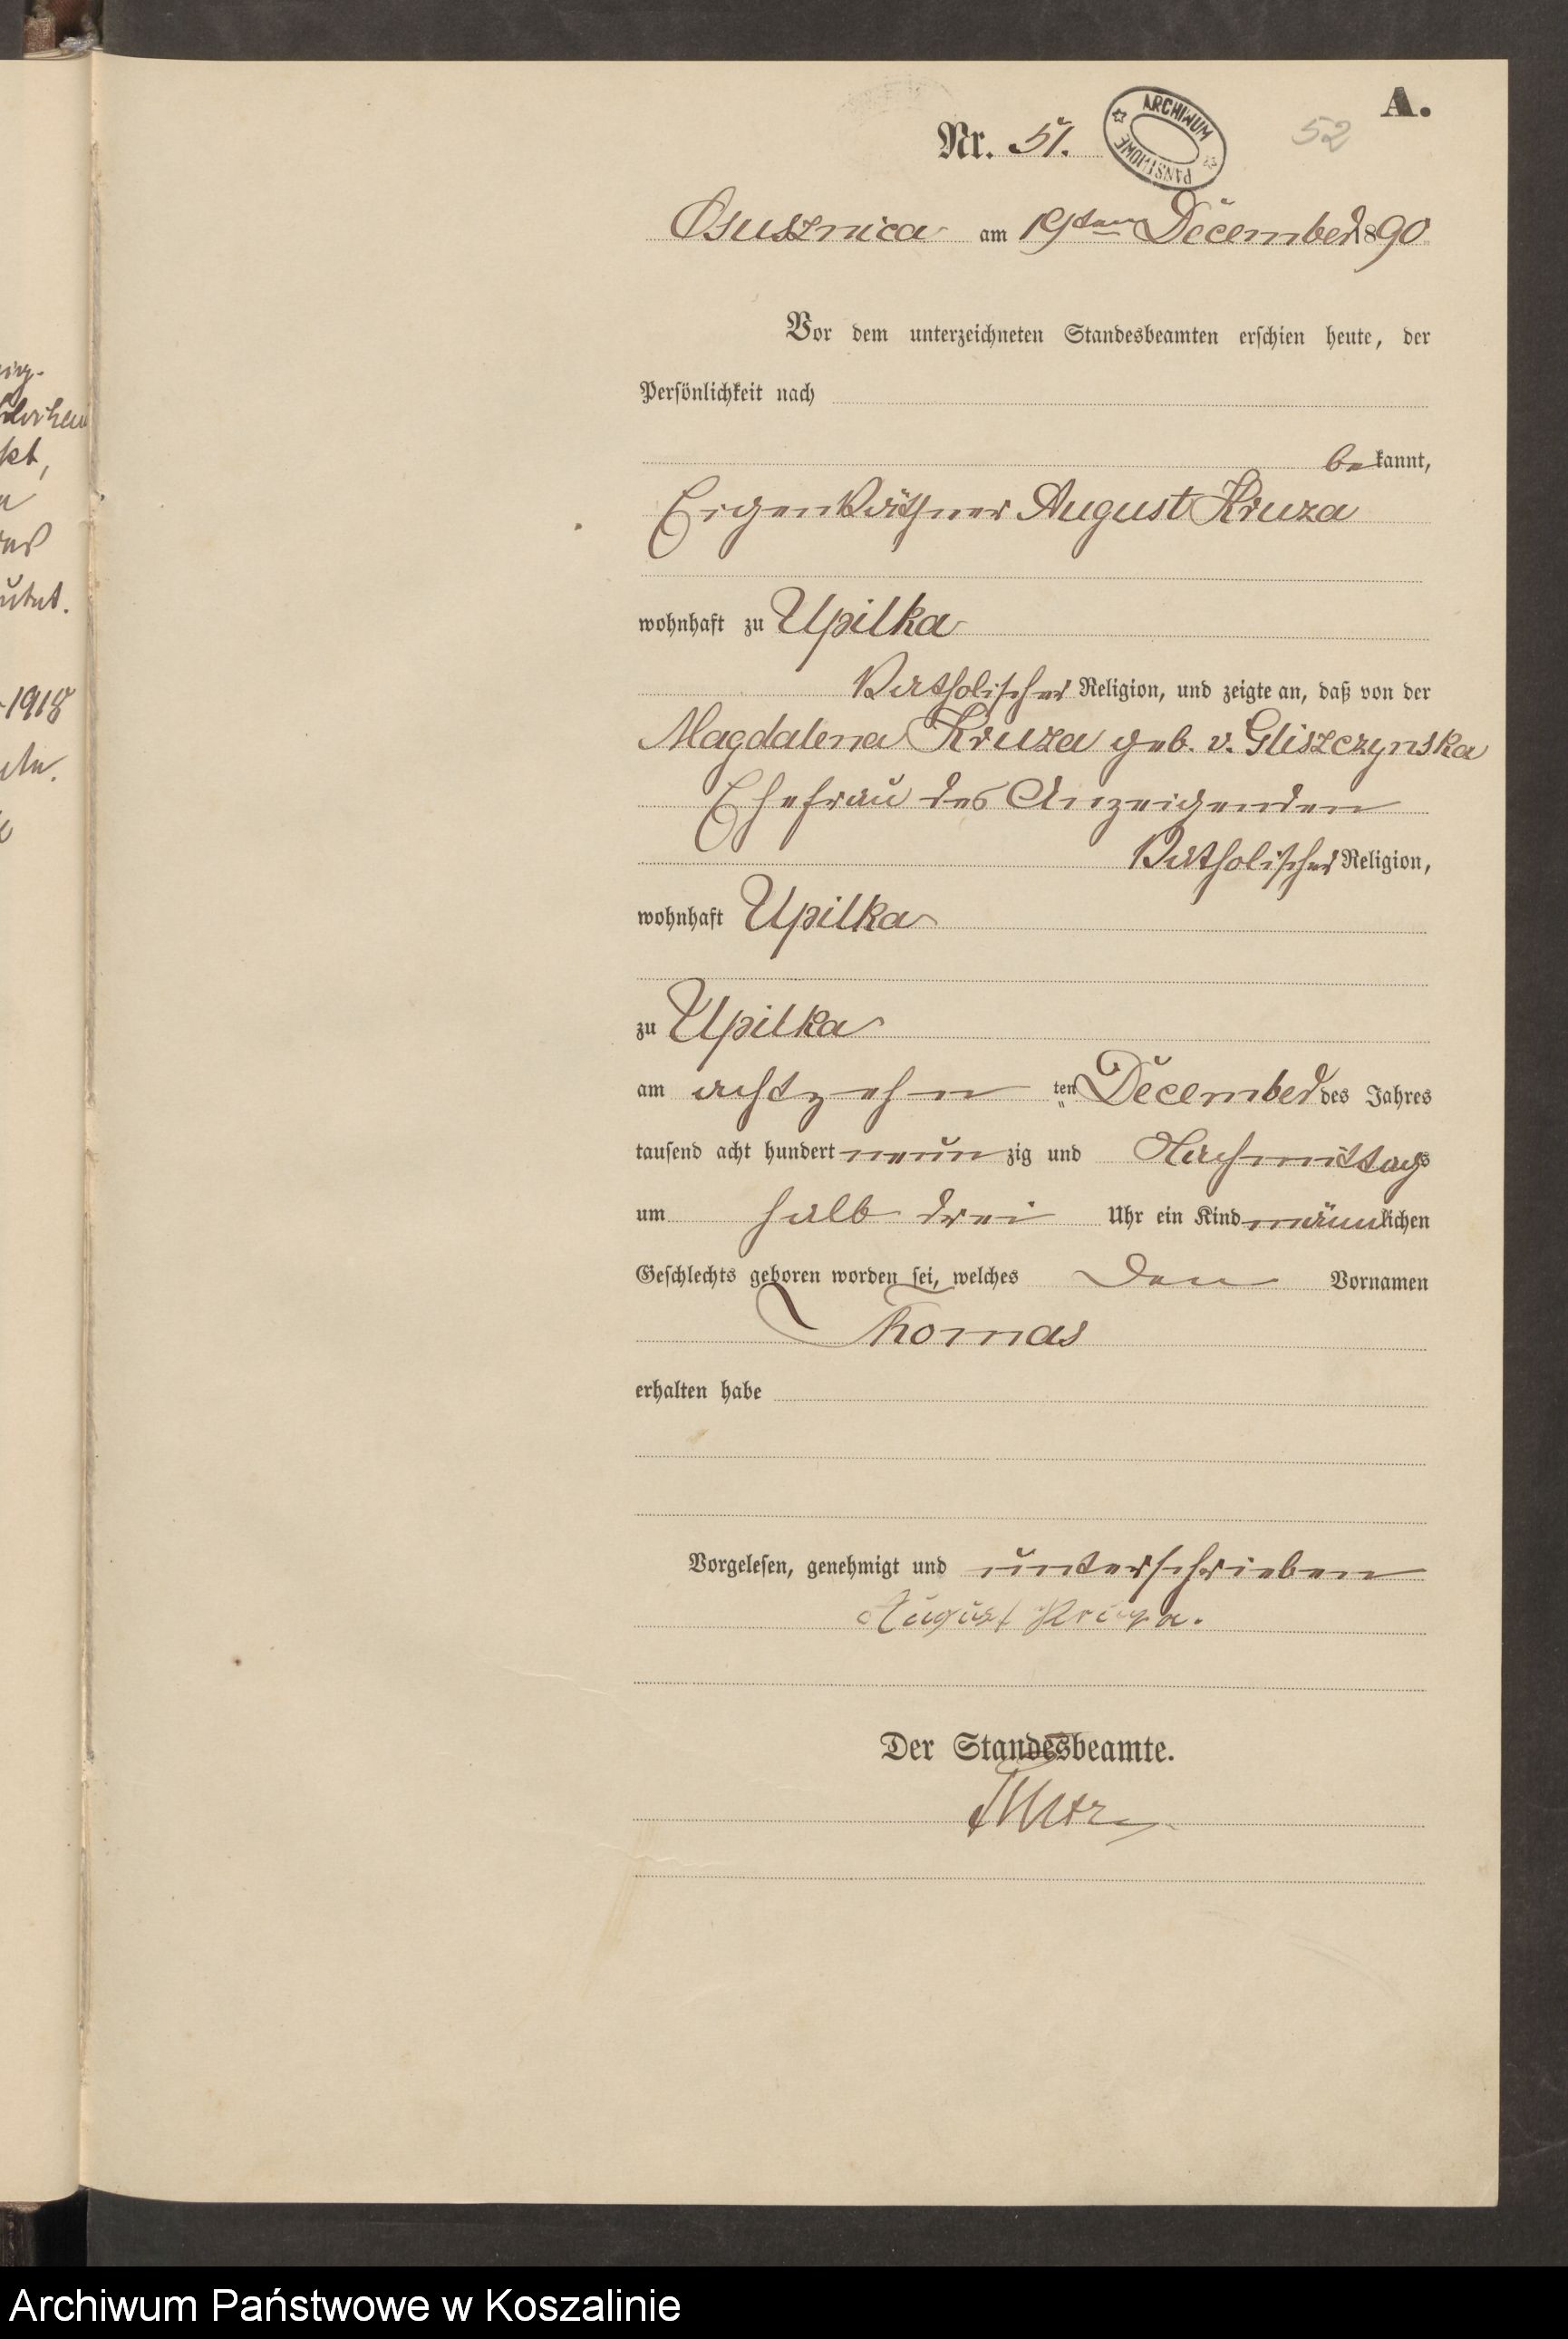 A.
Nr. 51.
ARCHIWUM PAŃSTWOWE
52
Osusznica am 19ten December 1890
Vor dem unterzeichneten Standesbeamten erschien heute, der
Persönlichkeit nach
bekannt,
Eigenkäthner August Kruza
wohnhaft zu Upilka
katholischer Religion, und zeigte an, daß von der
Magdalena Kruza geb. v. Gliszczynska
Ehefrau des Anzeigenden
katholischer Religion,
wohnhaft Upilka
zu Upilka
am achtzehn ten December des Jahres
tausend acht hundert neunzig und Nachmittags
um halb drei Uhr ein Kind männlichen
Geschlechts geboren worden sei, welches den Vornamen
Thomas
erhalten habe
Vorgelesen, genehmigt und unterschrieben
August Kruza.
Der Standesbeamte.
-1918
Archiwum Państwowe w Koszalinie